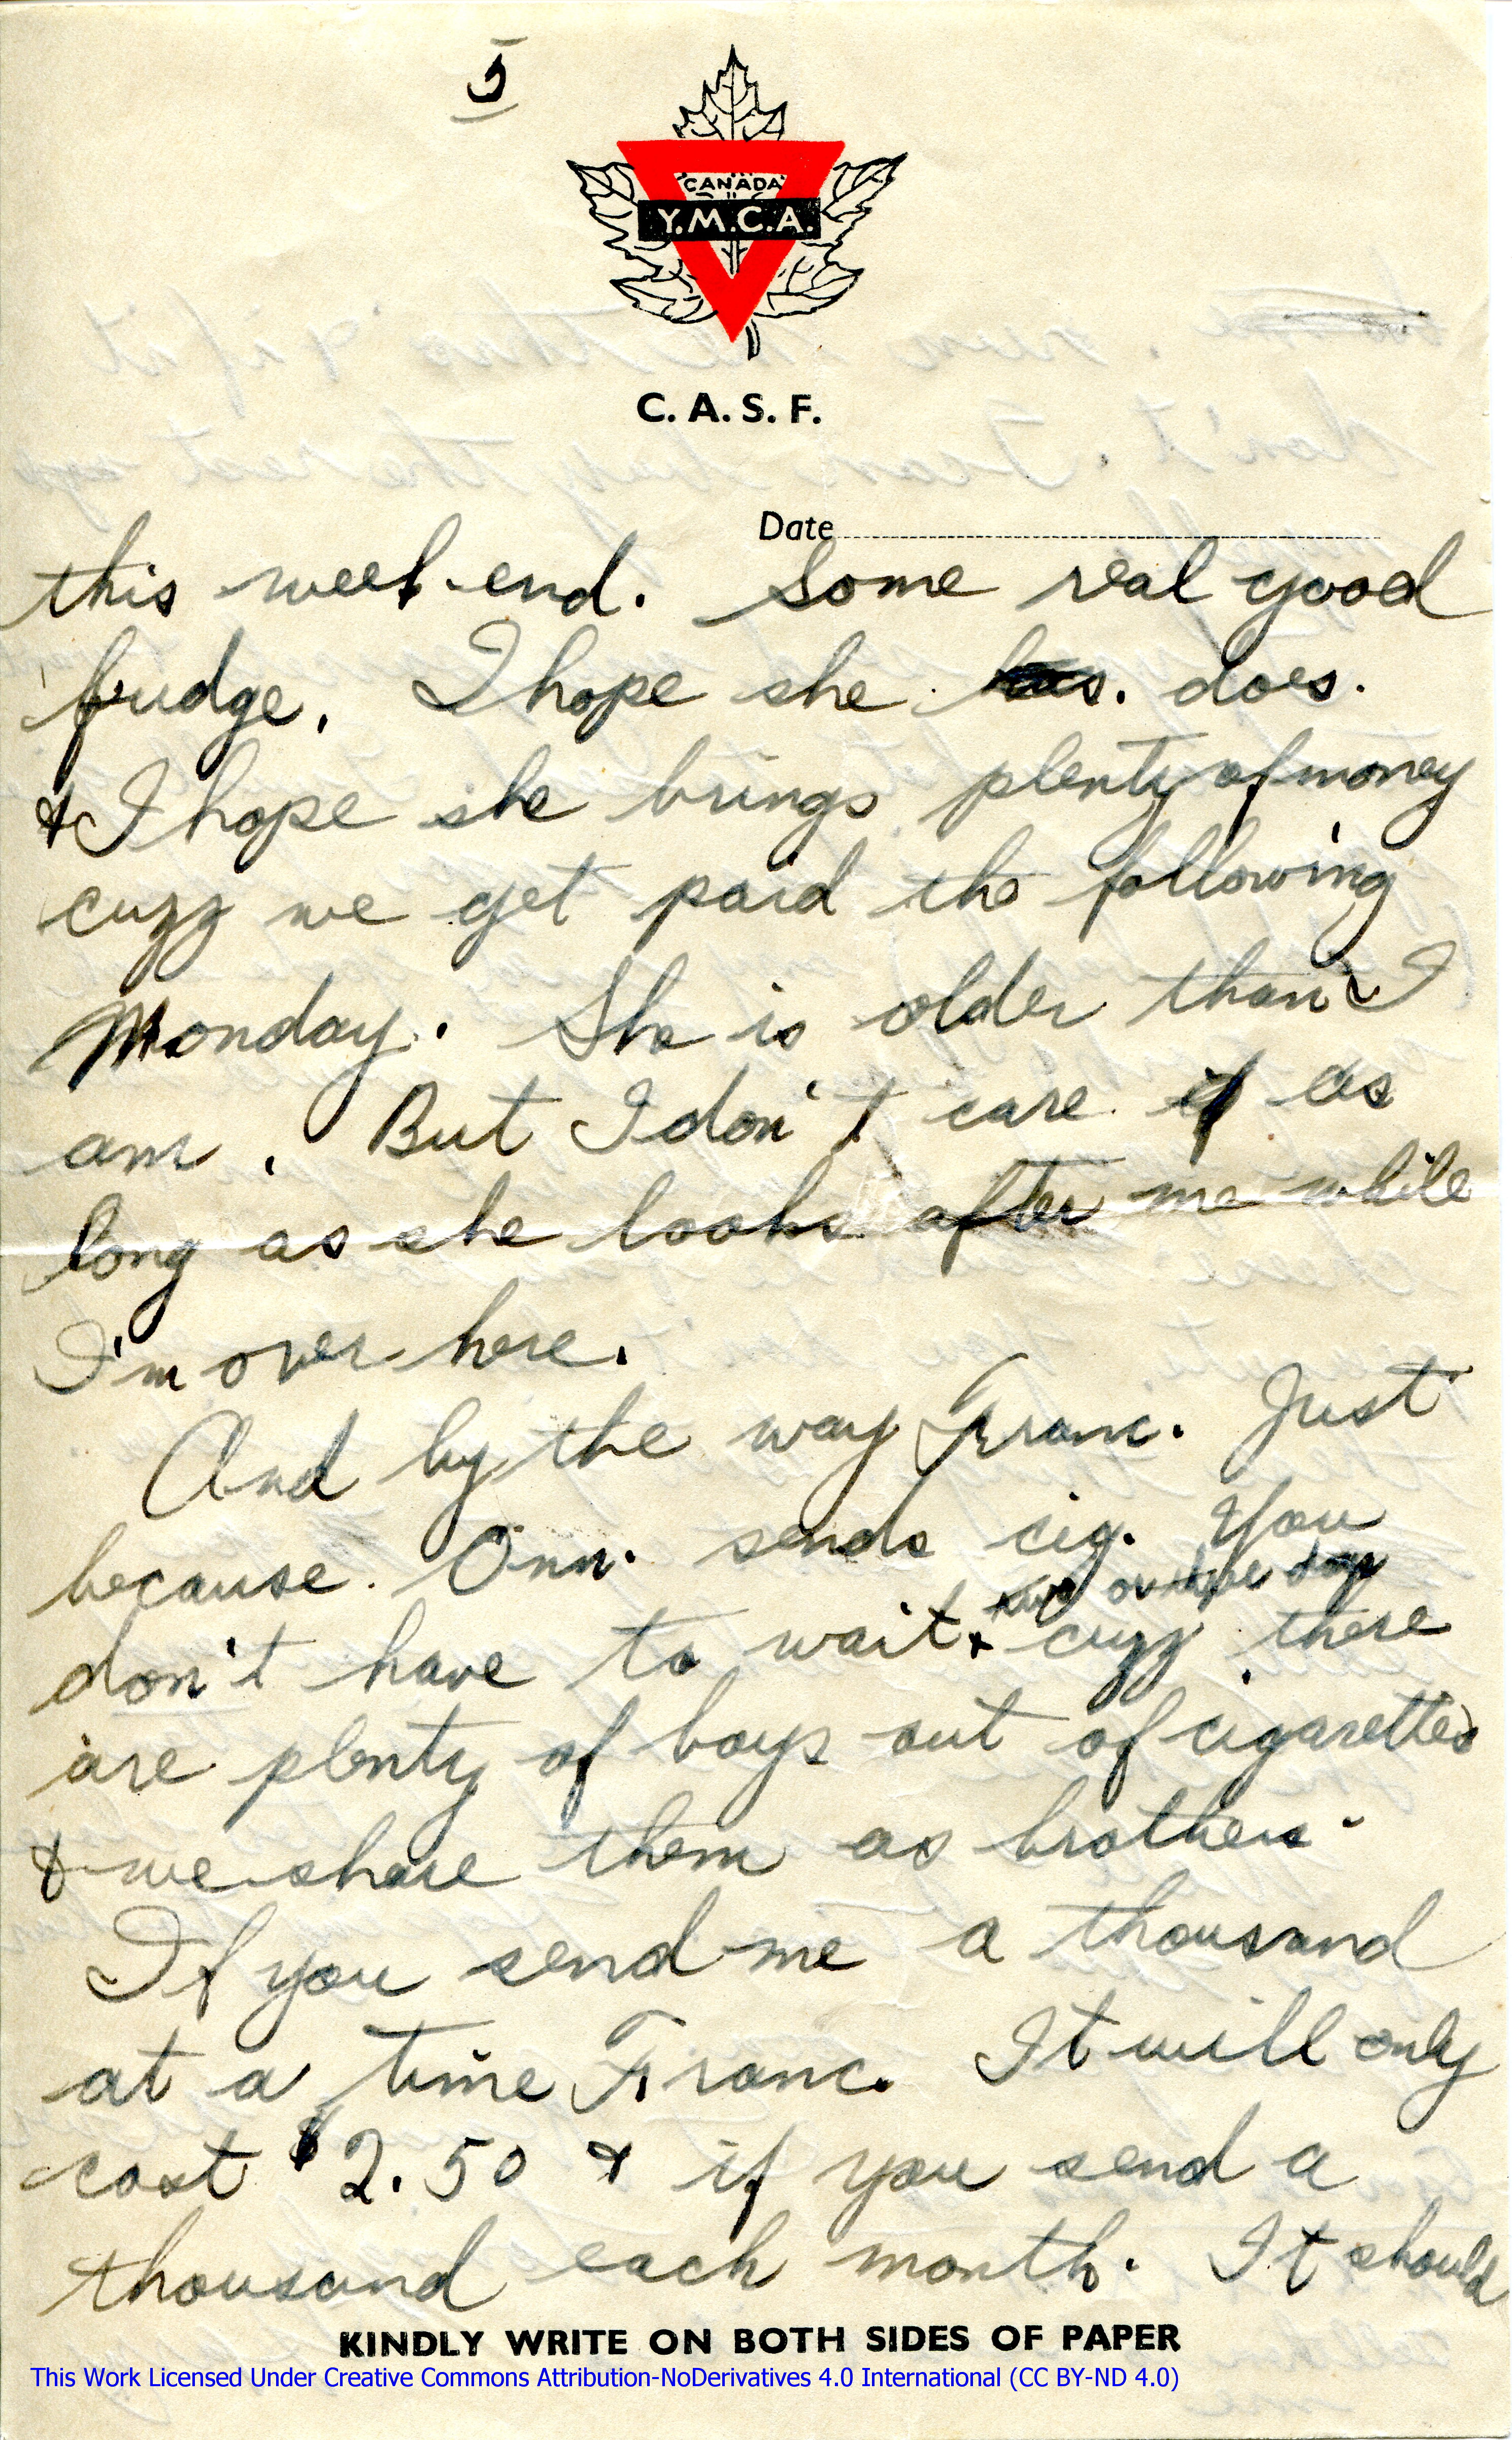 5
CANADA
Y.M.C.A.
C. A. S. F.
Date
this week-end. Some real good
fudge. I hope she has. does.
& I hope she brings plenty of money
cuzz we get paid the following
Monday. She is older than I
am. But I don't care if as
long as she looks after me while
I'm over here.
And by the way Franc. Just
because. Ann. sends cig. You
two or three days
don't have to wait & cuzz there
are plenty of boys out of cigarettes
& we share them as brothers.
If you send me a thousand
at a time Franc. It will only
cost $2.50 & if you send a
thousand each month. It should
KINDLY WRITE ON BOTH SIDES OF PAPER
This Work Licensed Under Creative Commons Attribution-NoDerivatives 4.0 International (CC BY-ND 4.0)